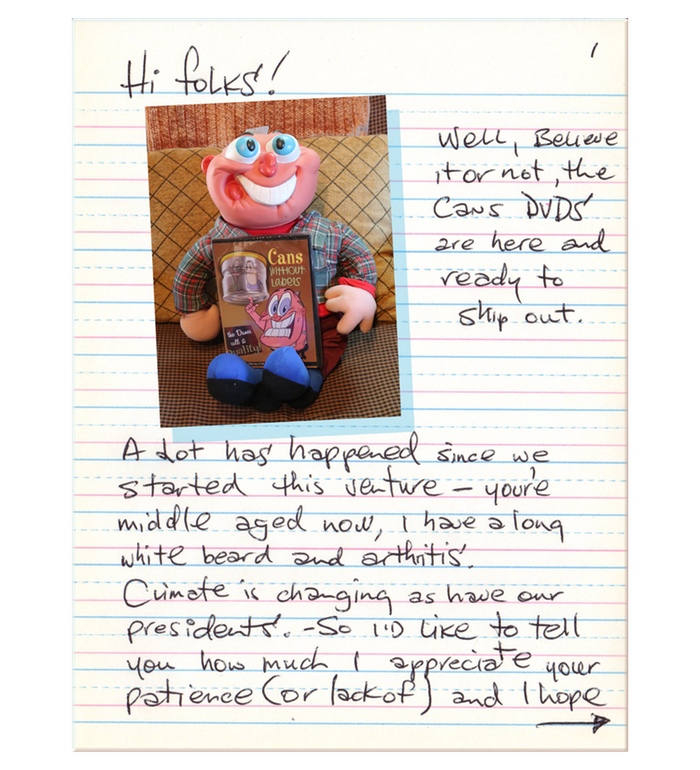 1
Hi folks!
Well, Believe
it or not, the
Cans DVDS
are here and
ready to
ship out.
Cans
Without
Labels
the Dunes
all is
Quality!
A Lot has happened since we
started this venture – you're
middle aged now, I have a long
white beard and arthritis.
Climate is changing as have our
presidents. -So I'D Like to tell
you how much I appreciate your
patience (or lack of) and I hope